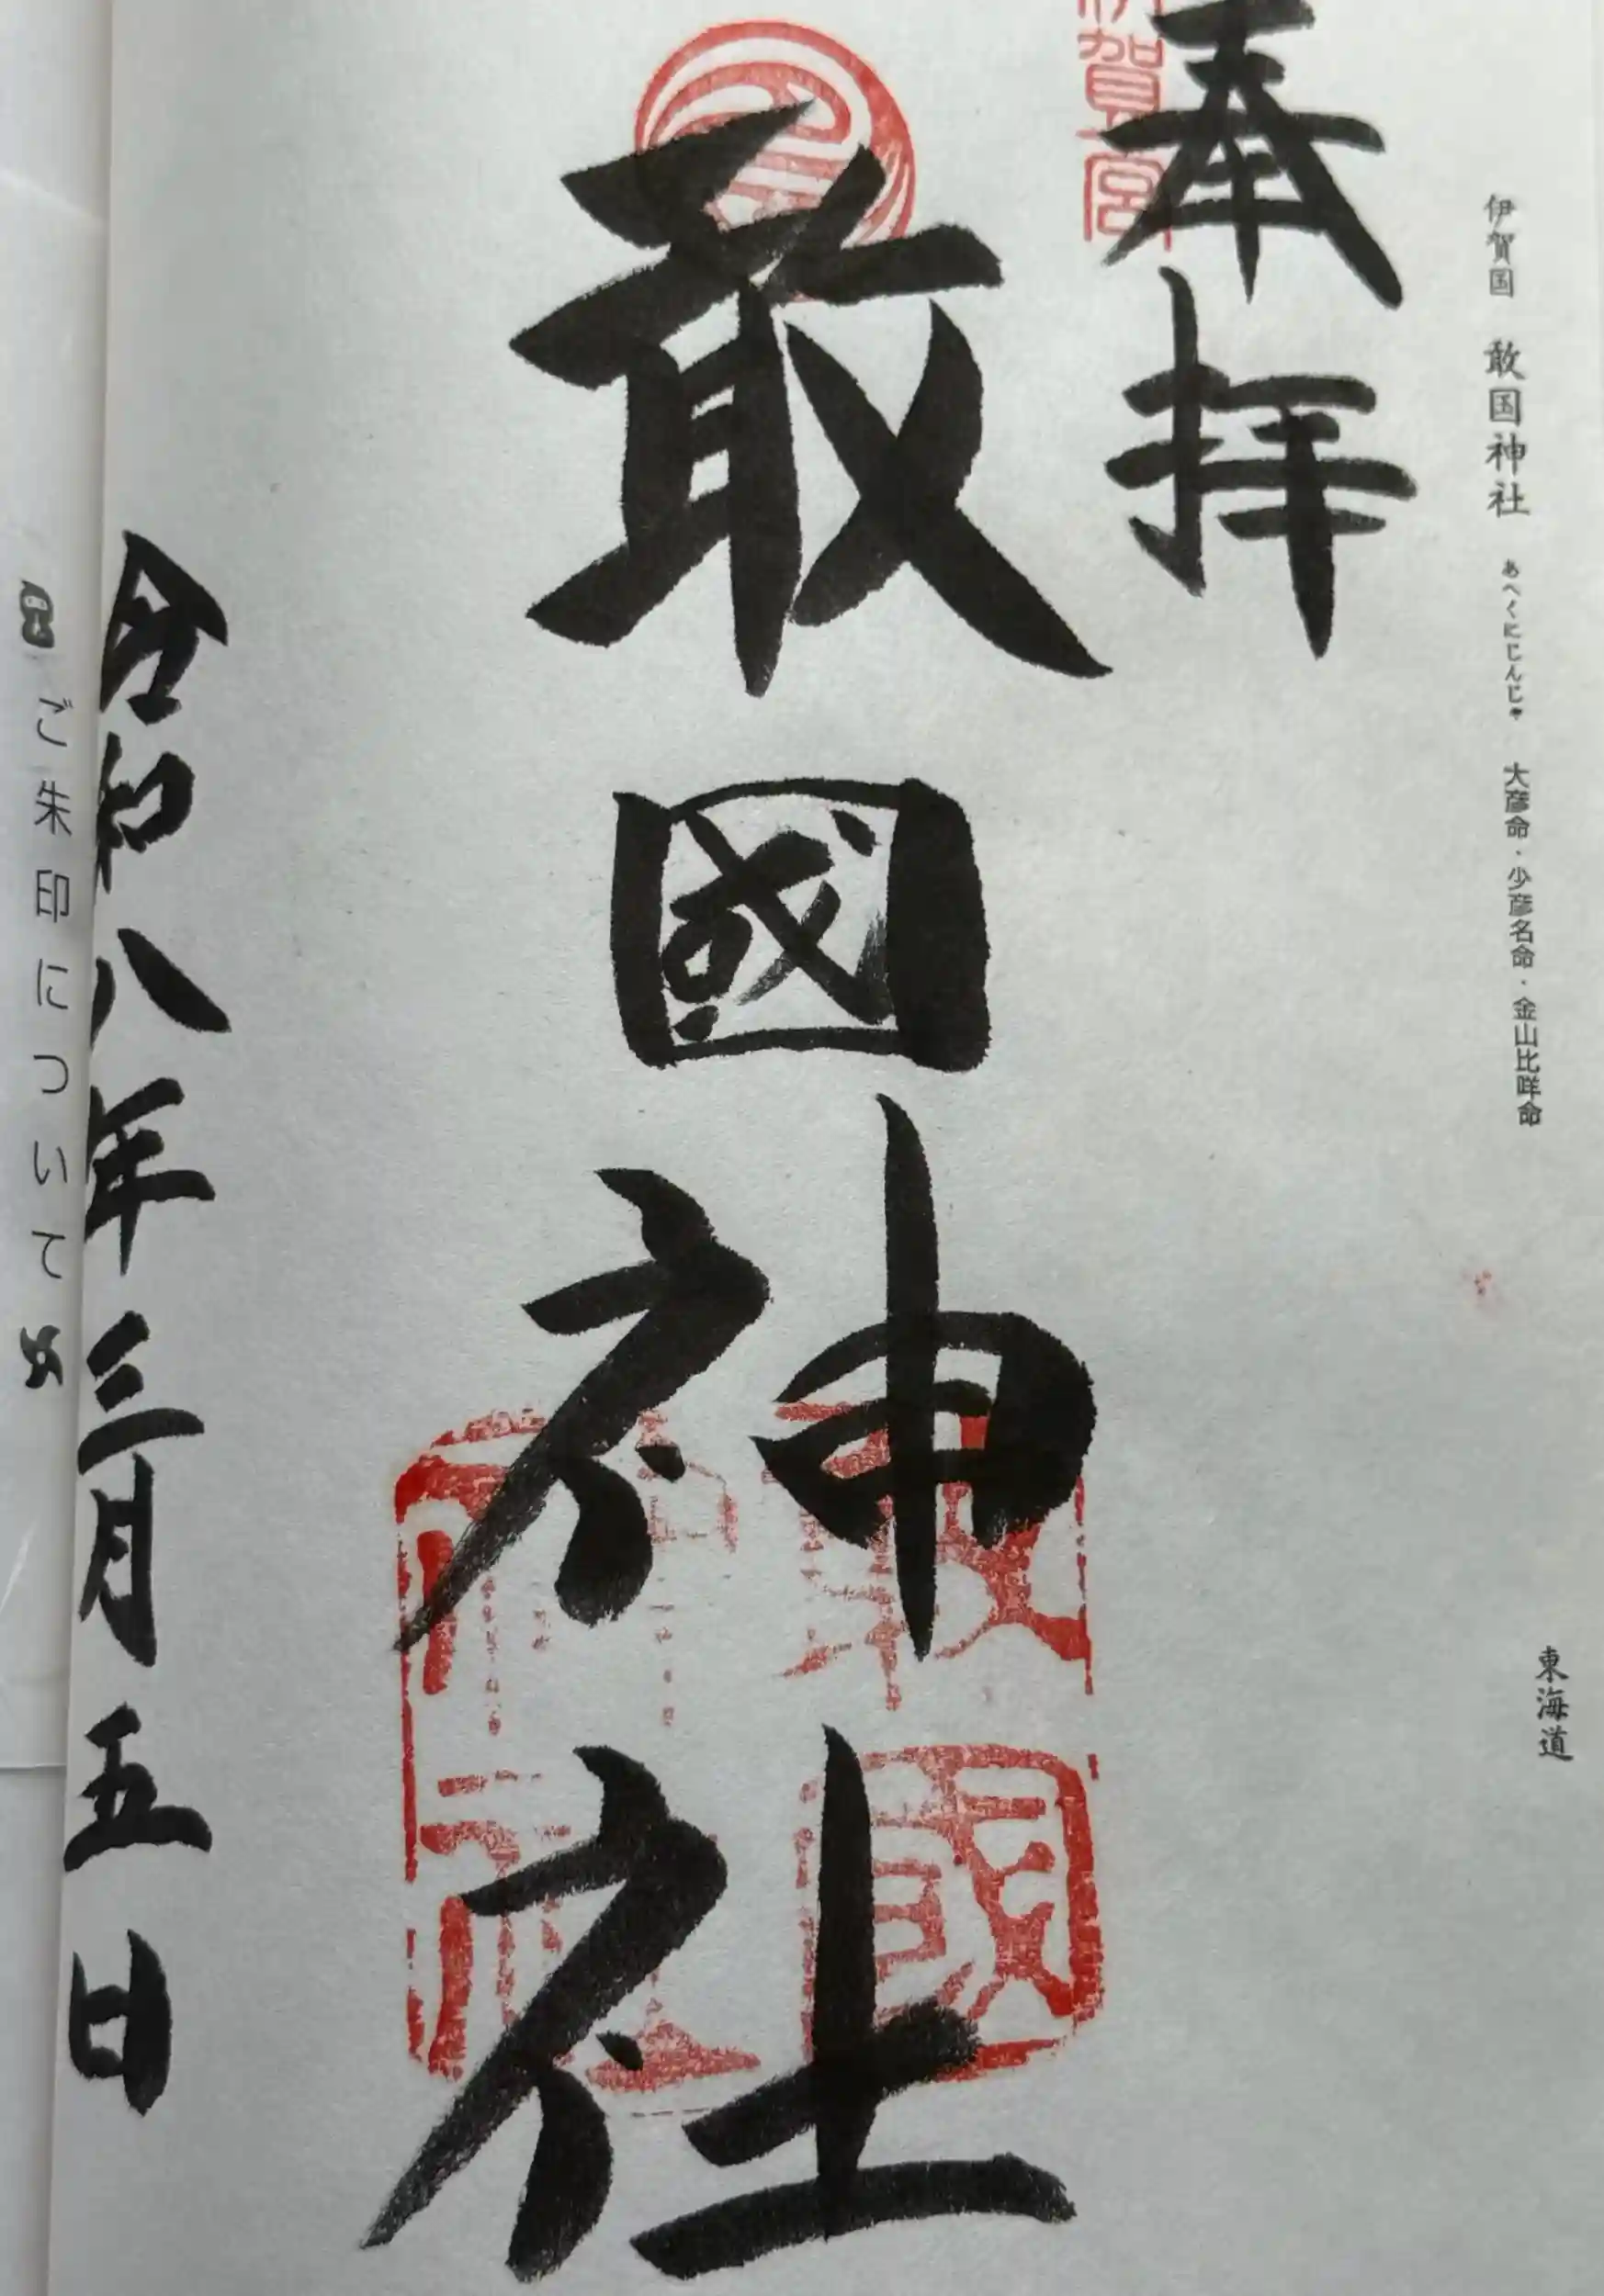 伊賀国 敢国神社 あへくにじんじゃ 大彦命・少彦名命・金山比咩命
東海道
奉拝
賀宮
敢國神社
敢國神社
令和八年三月五日
ご朱印について